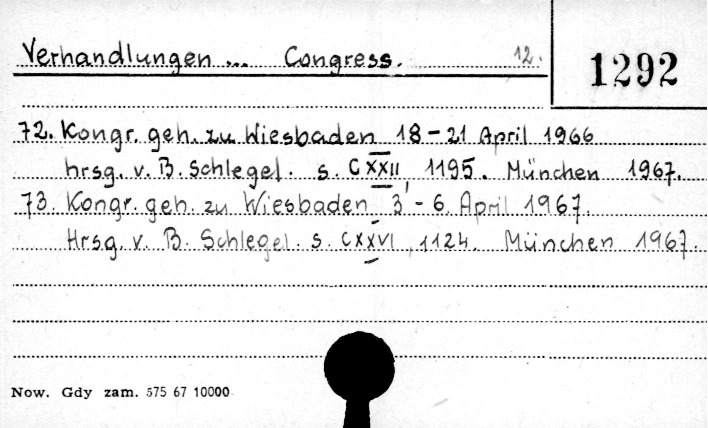 Verhandlungen ... Congress. 12.
1292
72. Kongr. geh. zu Wiesbaden 18-21 April 1966
hrsg. v. B. Schlegel. s. CXXII, 1195. München 1967.
73. Kongr. geh. zu Wiesbaden 3-6. April 1967.
Hrsg. v. B. Schlegel. s. CXXVI, 1124. München 1967.
Now. Gdy zam. 575 67 10000